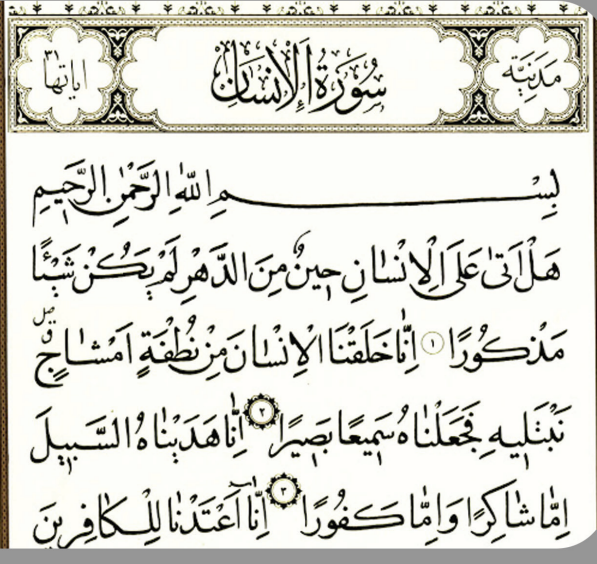 مَدَنِيَّة سُورَةُ الْاِنْسَانِ اٰيَاتُهَا ٣١
بِسْمِ اللّٰهِ الرَّحْمٰنِ الرَّح۪يمِ
هَلْ اَتٰى عَلَى الْاِنْسَانِ ح۪ينٌ مِنَ الدَّهْرِ لَمْ يَكُنْ شَيْـًٔا
مَذْكُورًا ١ اِنَّا خَلَقْنَا الْاِنْسَانَ مِنْ نُطْفَةٍ اَمْشَاجٍۗ
نَبْتَل۪يهِ فَجَعَلْنَاهُ سَم۪يعًا بَص۪يرًا ٢ اِنَّا هَدَيْنَاهُ السَّب۪يلَ
اِمَّا شَاكِرًا وَاِمَّا كَفُورًا ٣ اِنَّٓا اَعْتَدْنَا لِلْكَافِر۪ينَ